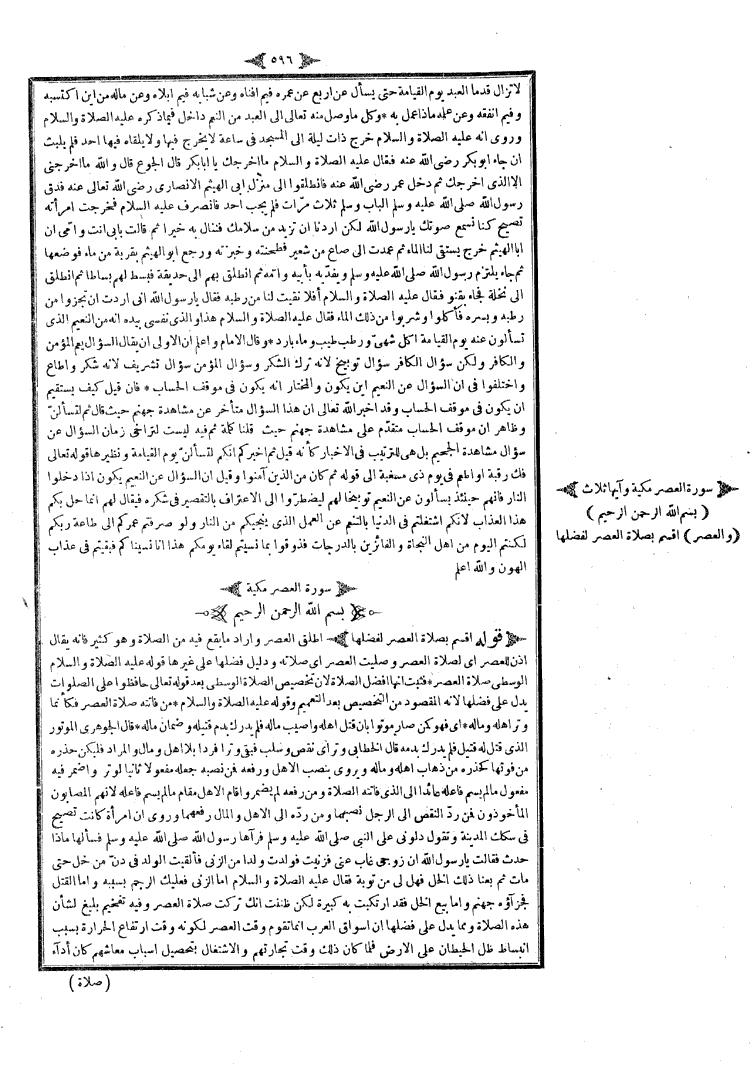 ٥٩٦
لاتزال قدما العبد يوم القيامة حتى يسأل عن اربع عن عمره فيم افناه وعن شبابه فيم ابلاه وعن ماله من اين اكتسبه
وفيم انفقه وعن علمه ماذا عمل به * وكل ماوصل منه تعالى الى العبد من النعيم داخل فيما ذكره عليه الصلاة والسلام
وروى انه عليه الصلاة والسلام خرج ذات ليلة الى المسجد فى ساعة لايخرج فيها ولا يلقاه فيها احد فلم يلبث
ان جاء ابو بكر رضى الله عنه فقال عليه الصلاة و السلام ما اخرجك يا ابابكر قال الجوع قال و الله ما اخرجنى
الا الذى اخرجك ثم دخل عمر رضى الله عنه فانطلقوا الى منزل ابى الهيثم الانصارى رضى الله تعالى عنه فدق
رسول الله صلى الله عليه وسلم الباب وسلم ثلاث مرّات فلم يجب احد فانصرف عليه السلام فخرجت امرأته
تصيح كنا نسمع صوتك يارسول الله لكن اردنا ان تزيد من سلامك فننال به خيرا ثم قالت بابى انت وامى ان
ابا الهيثم خرج يستقى لنا الماء ثم عمدت الى صاع من شعير فطحنته و خبزته و رجع ابو الهيثم بقربة من ماء فوضعها
ثم جاء يلتزم رسول الله صلى الله عليه وسلم ويفدّيه بأبيه وامه ثم انطلق بهم الى حديقة فبسط لهم بساطا ثم انطلق
الى نخلة فجاء بقنو فقال عليه الصلاة و السلام أفلا نقيت لنا من رطبه فقال يارسول الله انى اردت ان تجتزوا من
رطبه و بسره فأكلوا و شربوا من ذلك الماء فقال عليه الصلاة و السلام هذا والذى نفسى بيده انه من النعيم الذى
تسألون عنه يوم القيامة اكل شهىّ و رطب طيب وماء بارد * وقال الامام و اعلم ان الاولى ان يقال السؤال يعم المؤمن
و الكافر و لكن سؤال الكافر سؤال توبيخ لانه ترك الشكر و سؤال المؤمن سؤال تشريف لانه شكر و اطاع
و اختلفوا فى ان السؤال عن النعيم اين يكون و المختار انه يكون فى موقف الحساب * فان قيل كيف يستقيم
ان يكون فى موقف الحساب وقد اخبر الله تعالى ان هذا السؤال متأخر عن مشاهدة جهنم حيث قال ثم لتسألنّ
و ظاهر ان موقف الحساب متقدّم على مشاهدة جهنم حيث قلنا كلمة ثم فيه ليست لتراخى زمان السؤال عن
سؤال مشاهدة الجحيم بل هى للترتيب فى الاخبار كأنه قيل ثم اخبركم انكم لتسألنّ يوم القيامة و نظيرها قوله تعالى
فك رقبة او اطعام فى يوم ذى مسغبة الى قوله ثم كان من الذين آمنوا و قيل ان السؤال عن النعيم يكون اذا دخلوا
النار فانهم حينئذ يسألون عن النعيم توبيخا لهم ليضطرّوا الى الاعتراف بالتقصير فى شكره فيقال لهم انما حل بكم
هذا العذاب لانكم اشتغلتم فى الدنيا بالتنعم عن العمل الذى ينجيكم من النار و لو صرفتم عمركم الى طاعة ربكم
لكنتم اليوم من اهل النجاة و الفائزين بالدرجات فذوقوا بما نسيتم لقاء يومكم هذا انا نسيناكم فبقيتم فى عذاب
الهون و الله اعلم
سورة العصر مكية
بسم الله الرحمن الرحيم
قوله اقسم بصلاة العصر لفضلها اطلق العصر و اراد مايقع فيه من الصلاة و هو كثير فانه يقال
اذن للعصر اى لصلاة العصر و صليت العصر اى صلاته و دليل فضلها على غيرها قوله عليه الصلاة و السلام
الوسطى صلاة العصر * فثبت انها افضل الصلاة لان تخصيص الصلاة الوسطى بعد قوله تعالى حافظوا على الصلوات
يدل على فضلها لانه المقصود من التخصيص بعد التعميم و قوله عليه الصلاة والسلام * من فاتته صلاة العصر فكأنما
وتر اهله و ماله * اى فهو كمن صار موتورا بان قتل اهله و اصيب ماله فلم يدرك بدم قتيله و ضمان ماله * قال الجوهرى الموتور
الذى قتل له قتيل فلم يدرك بدمه قال الخطابى وتر اى نقص و سلب فبقى وترا فردا بلا اهل و مال و المراد فليكن حذره
من فوتها كحذره من ذهاب اهله و ماله و يروى بنصب الاهل و رفعه فن نصبه جعله مفعولا ثانيا لوتر و اضمر فيه
مفعول مالم يسم فاعله عائدا الى الذى فاتته الصلاة و من رفعه لم يضمر و اقام الاهل مقام مالم يسم فاعله لانهم المصابون
المأخوذون فن ردّ النقص الى الرجل نصبهما و من ردّه الى الاهل و المال رفعهما و روى ان امرأة كانت تصيح
فى سكك المدينة و تقول دلونى على النبى صلى الله عليه و سلم فرآها رسول الله صلى الله عليه و سلم فسألها ماذا
حدث فقالت يارسول الله ان زوجى غاب عنى فزنيت فولدت ولدا من الزنى فألقيت الولد فى دنّ من خل حتى
مات ثم بعنا ذلك الخل فهل لى من توبة فقال عليه الصلاة و السلام اما الزنى فعليك الرجم بسببه و اما القتل
فجزآؤه جهنم و اما بيع الخل فقد ارتكبت به كبيرة لكن ظننت انك تركت صلاة العصر و فيه تفخيم بليغ لشأن
هذه الصلاة و مما يدل على فضلها ان اسواق العرب انما تقوم وقت العصر لكونه وقت ارتفاع الحرارة بسبب
انبساط ظل الحيطان على الارض فلما كان ذلك وقت تجارتهم و الاشتغال بتحصيل اسباب معاشهم كان أدآء
(صلاة)
سورة العصر مكية وآيها ثلاث
(بسم الله الرحمن الرحيم)
(والعصر) اقسم بصلاة العصر لفضلها